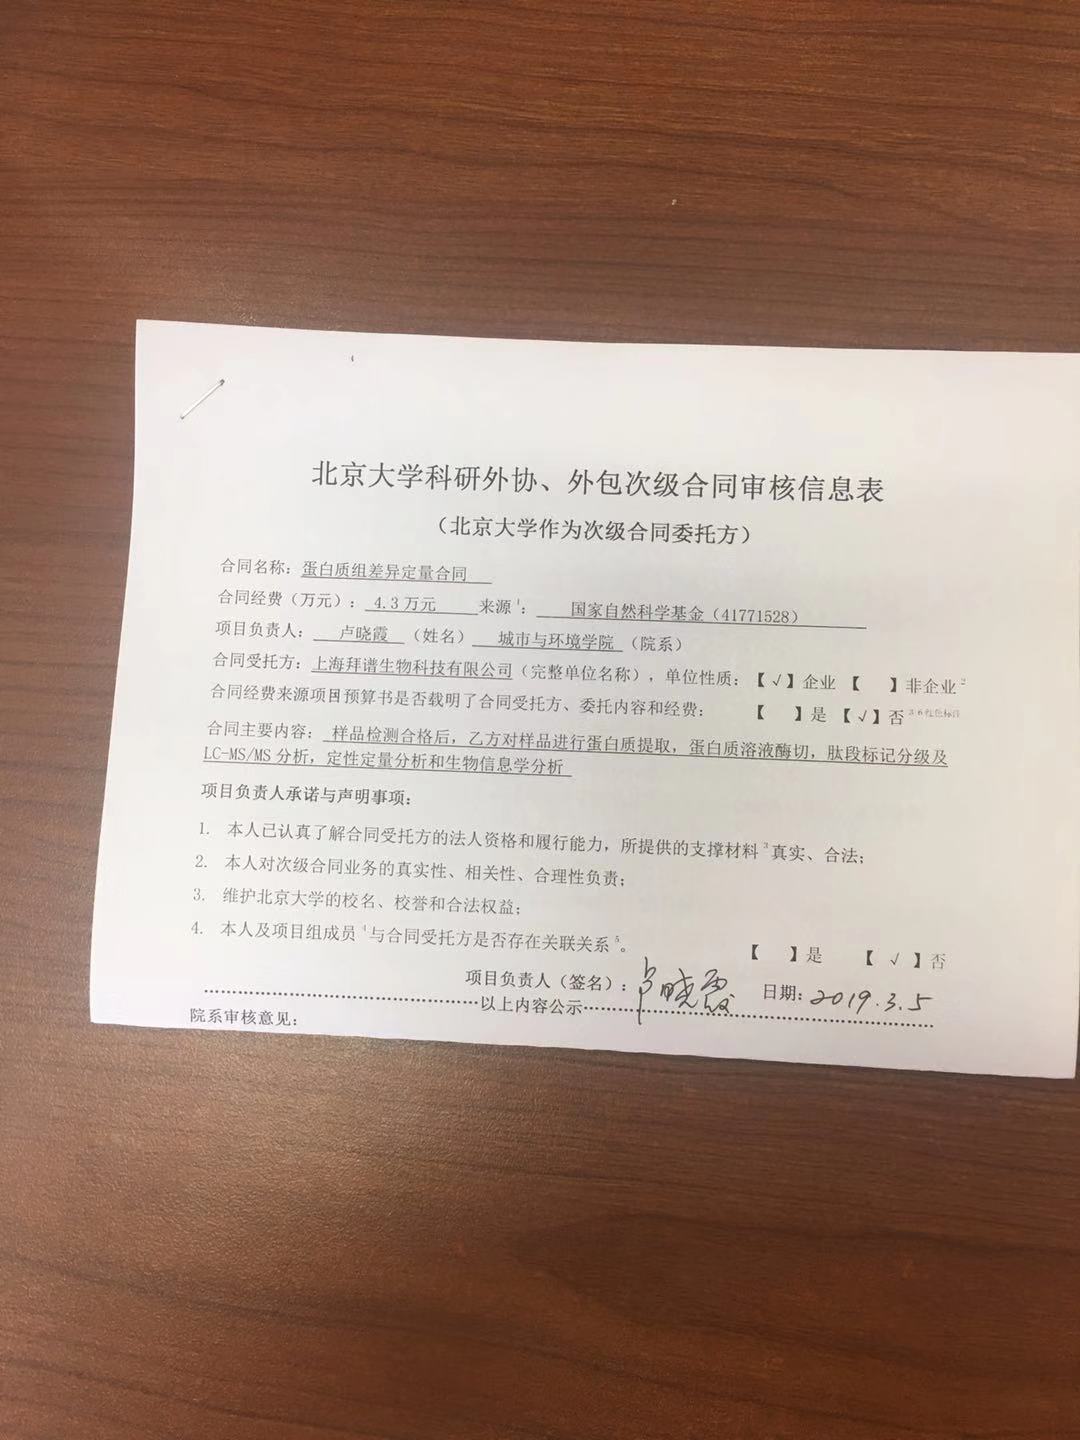 北京大学科研外协、外包次级合同审核信息表
（北京大学作为次级合同委托方）
合同名称：蛋白质组差异定量合同
合同经费（万元）：4.3万元 来源1：国家自然科学基金（41771528）
项目负责人：卢晓霞（姓名）城市与环境学院（院系）
合同受托方：上海拜谱生物科技有限公司（完整单位名称），单位性质：【√】企业【 】非企业2
合同经费来源项目预算书是否载明了合同受托方、委托内容和经费：【 】是【√】否
合同主要内容：样品检测合格后，乙方对样品进行蛋白质提取，蛋白质溶液酶切，肽段标记分级及
LC-MS/MS分析，定性定量分析和生物信息学分析
项目负责人承诺与声明事项：
1. 本人已认真了解合同受托方的法人资格和履行能力，所提供的支撑材料3真实、合法；
2. 本人对次级合同业务的真实性、相关性、合理性负责；
3. 维护北京大学的校名、校誉和合法权益；
4. 本人及项目组成员4与合同受托方是否存在关联关系5。【 】是【√】否
项目负责人（签名）：卢晓霞 日期：2019.3.5
以上内容公示
院系审核意见：